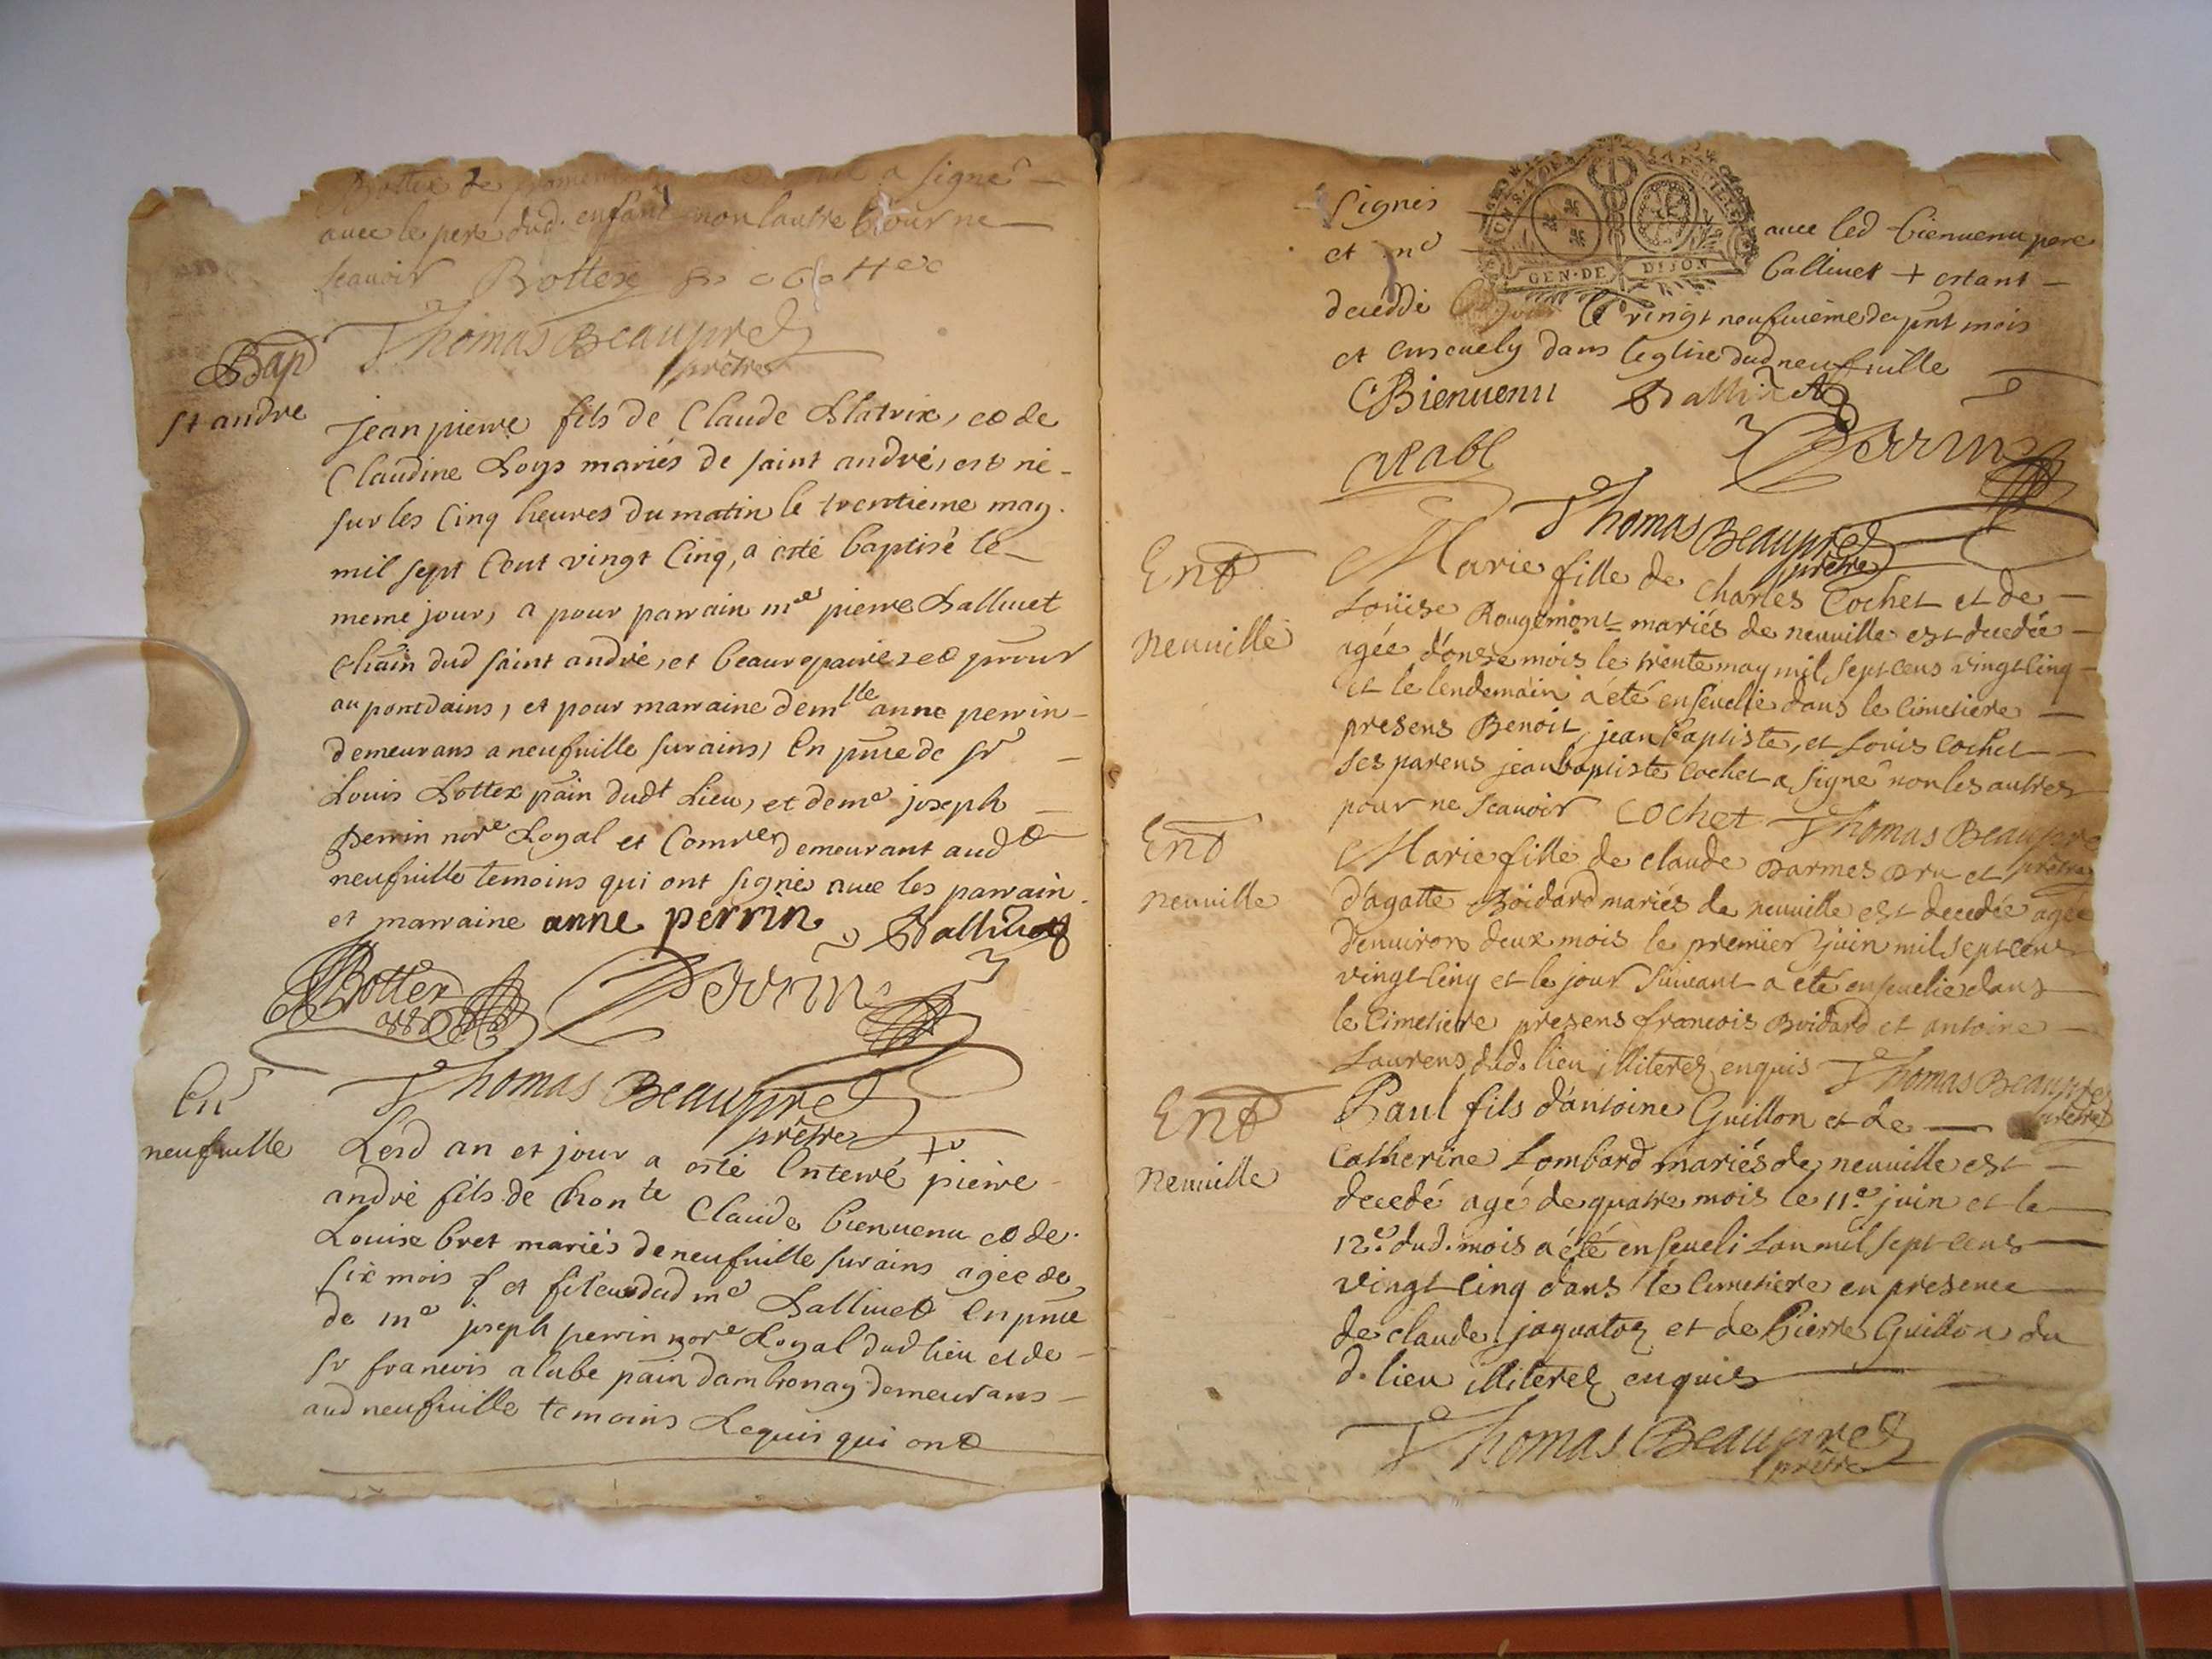 a signé
avec le pere dud. enfant non lautre pour ne
scavoir Bottex
Thomas Beaupre
prêtre
Bap
St andre
jean pierre fils de Claude Blatrix, et de
Claudine Loys mariés de saint andré, est né
sur les cinq heures du matin le trentième may
mil sept cent vingt cinq, a esté baptisé le
meme jour, a pour parrain me pierre Balliuet
chãin dud saint andré, et beaurepaire, et
au pontdains, et pour marraine demlle anne perrin
demeurans a neufuille surains, En pñce de sr
Louis Bottex pãin dudt Lieu, et de me joseph
perrin nore Royal et Comre demeurant aud
neufuille temoins qui ont signé avec les parrain
et marraine anne perrin Balliuet
Bottex Perrin
Thomas Beaupre
prêtre
En
neufuille
Lesd an et jour a esté Enterré + pierre
andré fils de honte Claude bienuenu et de
Louise bret mariés de neufuille surains agée de
six mois et dud me Balliuet En pñce
de me joseph perrin nore Royal dud lieu et de
sr francois alabe pãin dambronay demeurans
aud neufuille temoins Requis qui ont
signés avec led bienuenu pere
et me Balliuet + estant
decedé le vingt neufuième du pñt mois
et enseuely dans leglise dud neufuille
CBienuenu Balliuet
alabe Perrin
Thomas Beaupre
prêtre
Ent
neuuille
Marie fille de Charles Cochet et de
Loüise Rougemont mariés de neuuille est decedée
agée d'onse mois le trente may mil sept cens vingt cinq
et le lendemain a été enseuelie dans le cimetiere
presens Benoit, jean baptiste, et Louis Cochet
ses parens jean baptiste cochet a signé non les autres
pour ne scauoir Cochet Thomas Beaupre
prêtre
Ent
neuuille
Marie fille de claude Darmes dru et
d'agatte Boidard mariés de neuuille est decedée agée
d'enuiron deux mois le premier juin mil sept cens
vingt cinq et le jour suiuant a été enseuelie dans
le cimetiere presens francois Boidard et antoine
Laurens dud. lieu illiterez enquis Thomas Beaupre
prêtre
Ent
Neuuille
Paul fils d'antoine Guillon et de
Catherine Lombard mariés de neuuille est
decedé agé de quatre mois le 11e. juin et le
12e. dud. mois a été enseueli Lan mil sept cens
vingt cinq dans le cimetiere en presence
de claude jaquatoz et de Pierre Guillon du
d. lieu illiterez enquis
Thomas Beaupre
prêtre
GEN·DE DIJON